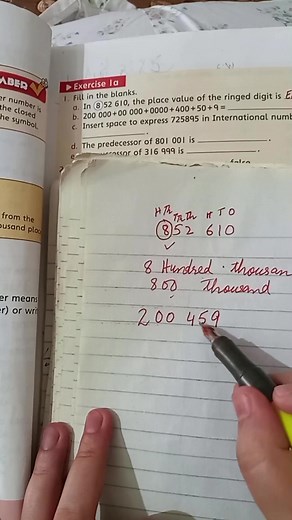 MBER
er number is
the closed
the symbol,
from the
ousand place
er means
er) or writ
▶ Exercise 1a
1. Fill in the blanks.
a. In ⑧52 610, the place value of the ringed digit is
b. 200 000+00 000+0000+400+50+9=
c. Insert space to express 725895 in International numb
d. The predecessor of 801 001 is
of 316 999 is
H Th TTh Th H T O
⑧52 610
8 Hundred thousan
800 Thousand
200 459